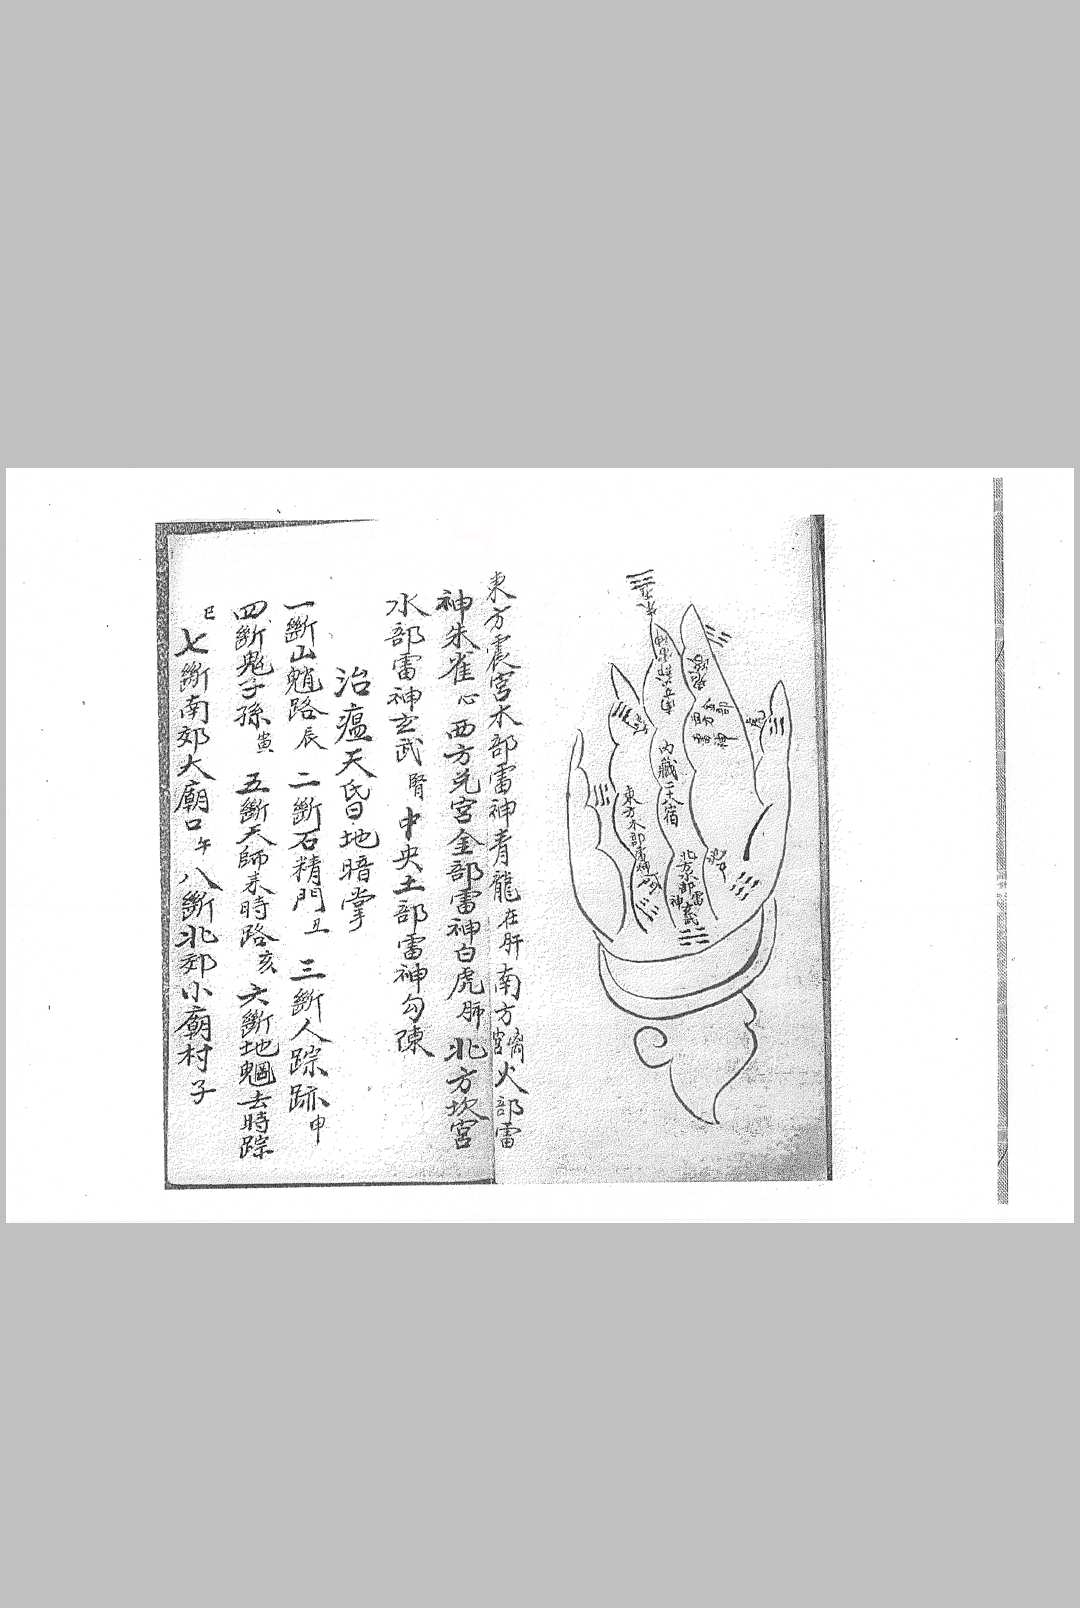 內藏二十八宿
西方金部雷神
北方水部雷神玄武
東方震宮木部雷神青龍在肝南方離宮火部雷
神朱雀心西方兌宮金部雷神白虎肺北方坎宮
水部雷神玄武腎中央土部雷神勾陳
治瘟天昏地暗掌
一斷山魈路辰 二斷石精門丑 三斷人踪跡申
四斷鬼子孫寅 五斷天師来時路亥 六斷地魍去時踪
巳 七斷南郊大廟口午 八斷北郊小廟村子